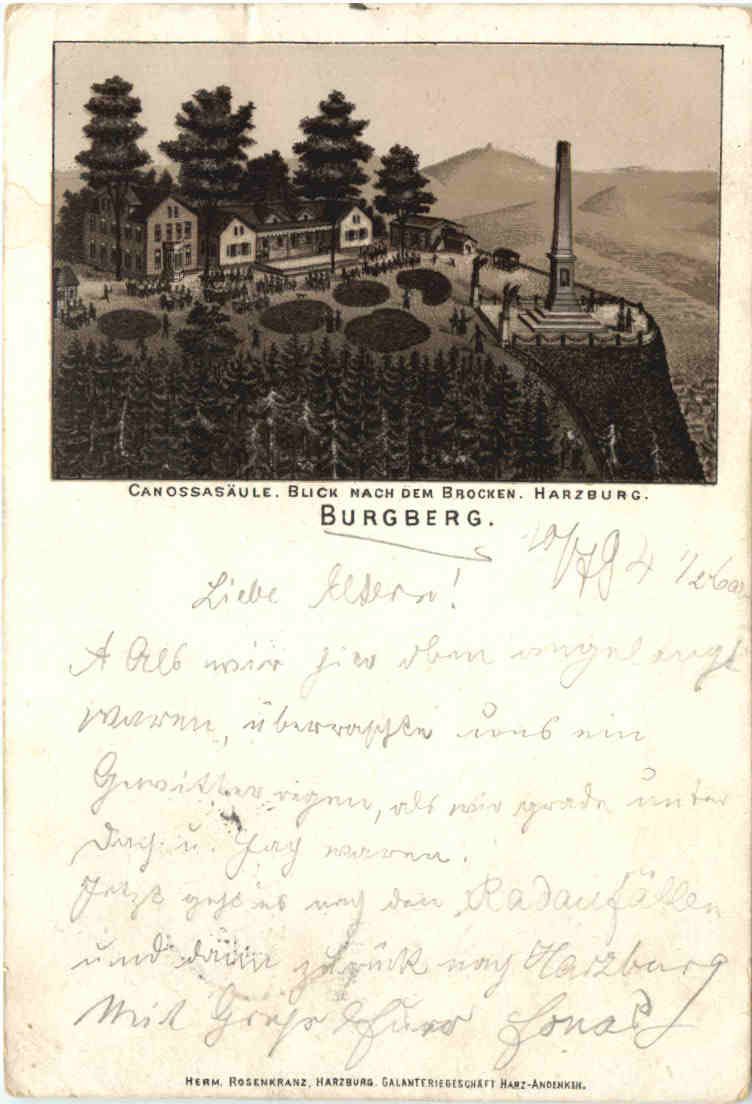 CANOSSASÄULE. BLICK NACH DEM BROCKEN. HARZBURG.
BURGBERG.
10/7 94
Liebe Eltern!
Als wir hier oben angelangt
waren, überraschte uns ein
Gewitterregen, als wir grade unter
Dach u. Fach waren.
Jetzt geht es nach den Radaufällen
und dann zurück nach Harzburg
Mit Gruß Euer
HERM. ROSENKRANZ, HARZBURG. GALANTERIEGESCHÄFT HARZ-ANDENKEN.